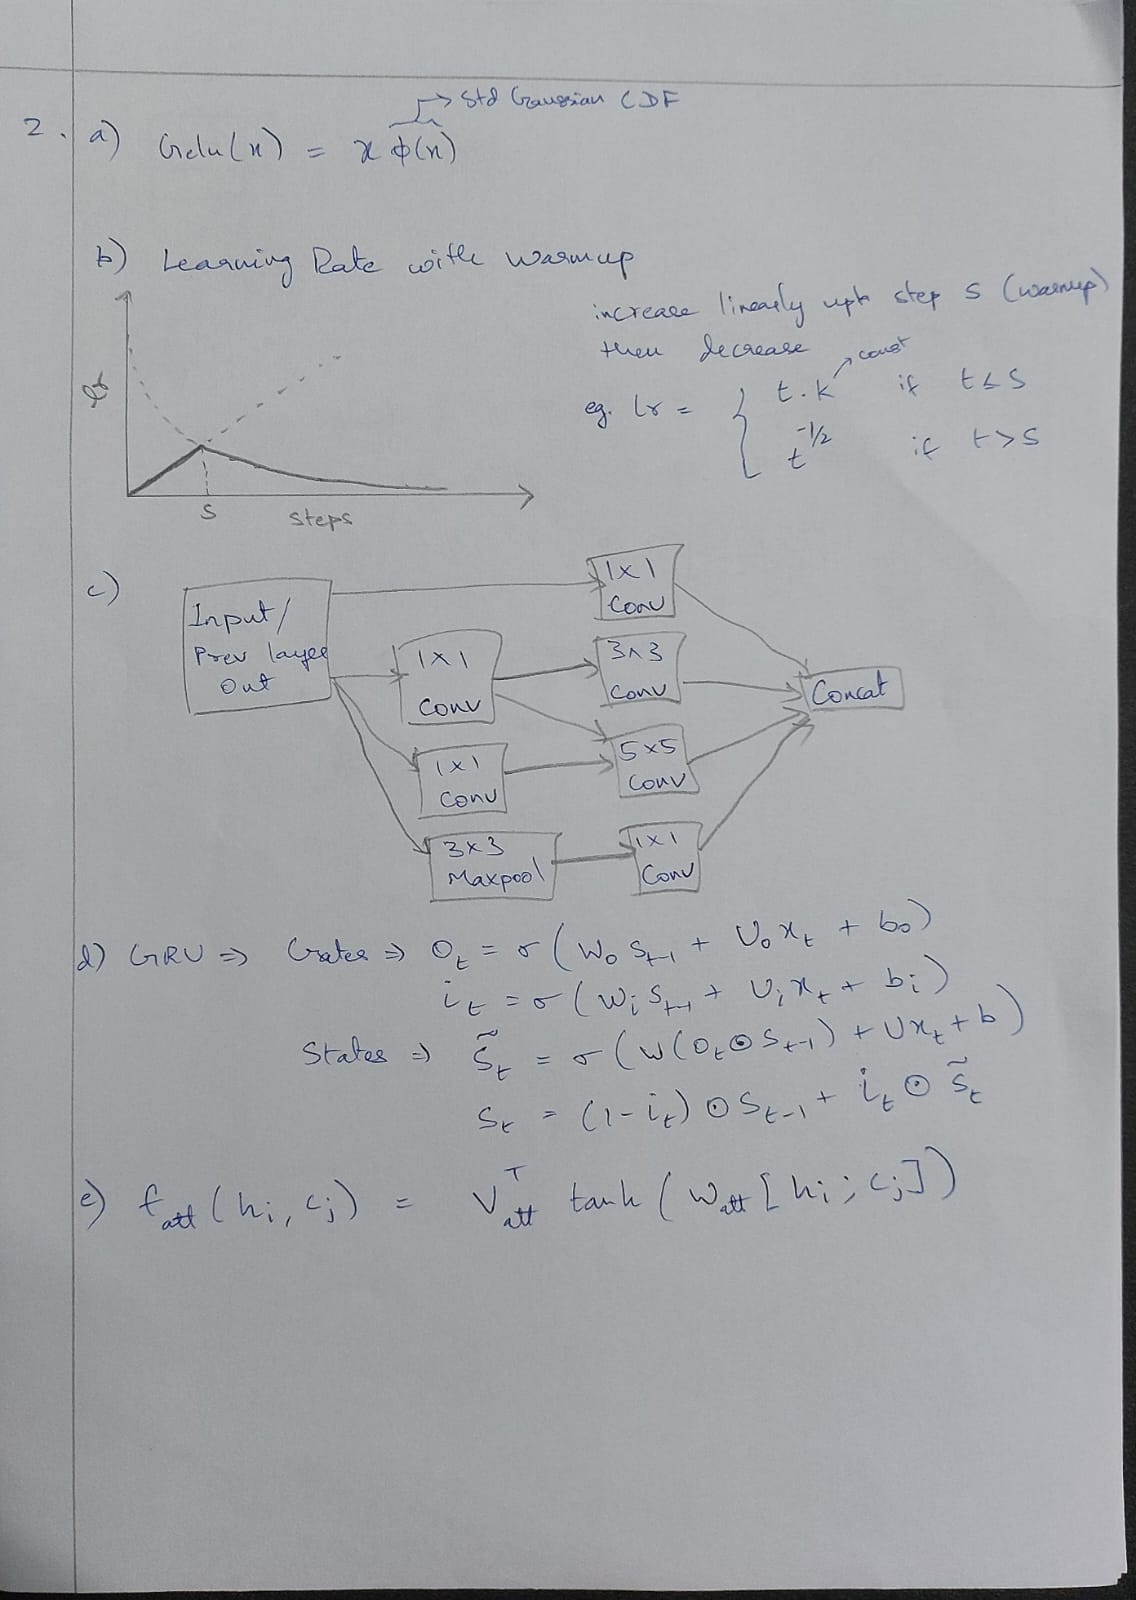 2. a) Gelu(x) = x ϕ(x) → Std Gaussian CDF
b) Learning Rate with warmup
increase linearly upto step s (warmup)
then decrease
eg. lr = { t.k → const if t ≤ s
t^{-1/2} if t > s
lr
s
steps
c)
Input/
Prev layer
Out
1x1
Conv
1x1
Conv
3x3
Conv
Concat
1x1
Conv
5x5
Conv
3x3
Maxpool
1x1
Conv
d) GRU ⇒ Gates ⇒ o_t = σ(W_o s_{t-1} + U_o x_t + b_o)
i_t = σ(W_i s_{t-1} + U_i x_t + b_i)
States ⇒ s̃_t = σ(W(o_t ⊙ s_{t-1}) + Ux_t + b)
s_t = (1-i_t) ⊙ s_{t-1} + i_t ⊙ s̃_t
e) f_att(h_i, c_j) = V_att^T tanh(W_att[h_i; c_j])